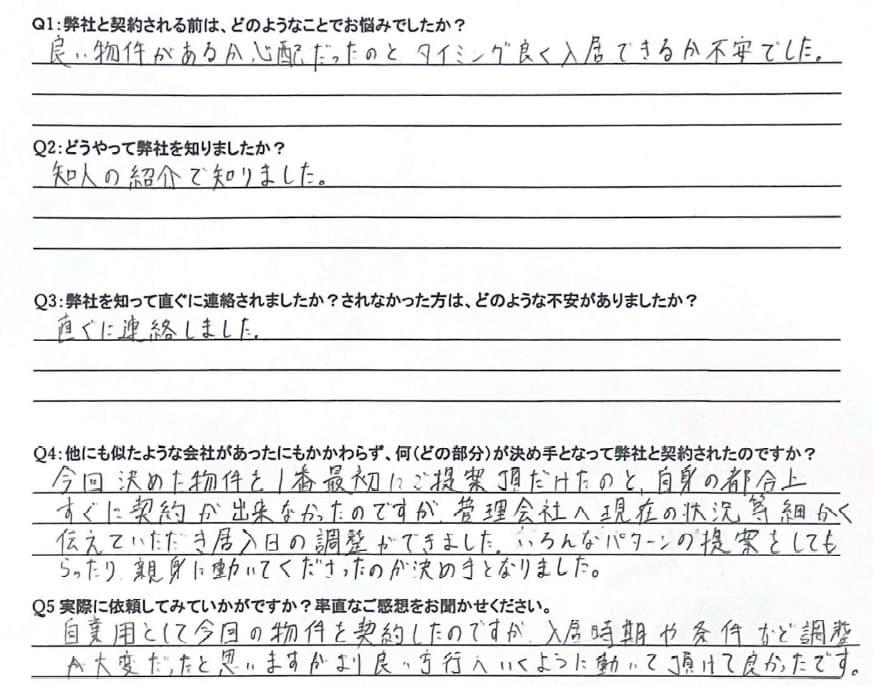 Q1:弊社と契約される前は、どのようなことでお悩みでしたか？
良い物件があるか心配だったのと タイミング良く入居できるか不安でした。
Q2:どうやって弊社を知りましたか？
知人の紹介で知りました。
Q3:弊社を知って直ぐに連絡されましたか？されなかった方は、どのような不安がありましたか？
直ぐに連絡しました。
Q4:他にも似たような会社があったにもかかわらず、何(どの部分)が決め手となって弊社と契約されたのですか？
今回決めた物件を1番最初にご提案頂だけたのと、自身の都合上
すぐに契約が出来なかったのですが、管理会社へ現在の状況等細かく
伝えていただき居入日の調整ができました。いろんなパターンの提案をしても
らったり、親身に動いてくださったのが決め手となりました。
Q5 実際に依頼してみていかがですか？率直なご感想をお聞かせください。
自業用として今回の物件を契約したのですが、入居時期や条件など調整
が大変だったと思いますがより良い方行へいくように動いて頂けて良かったです。